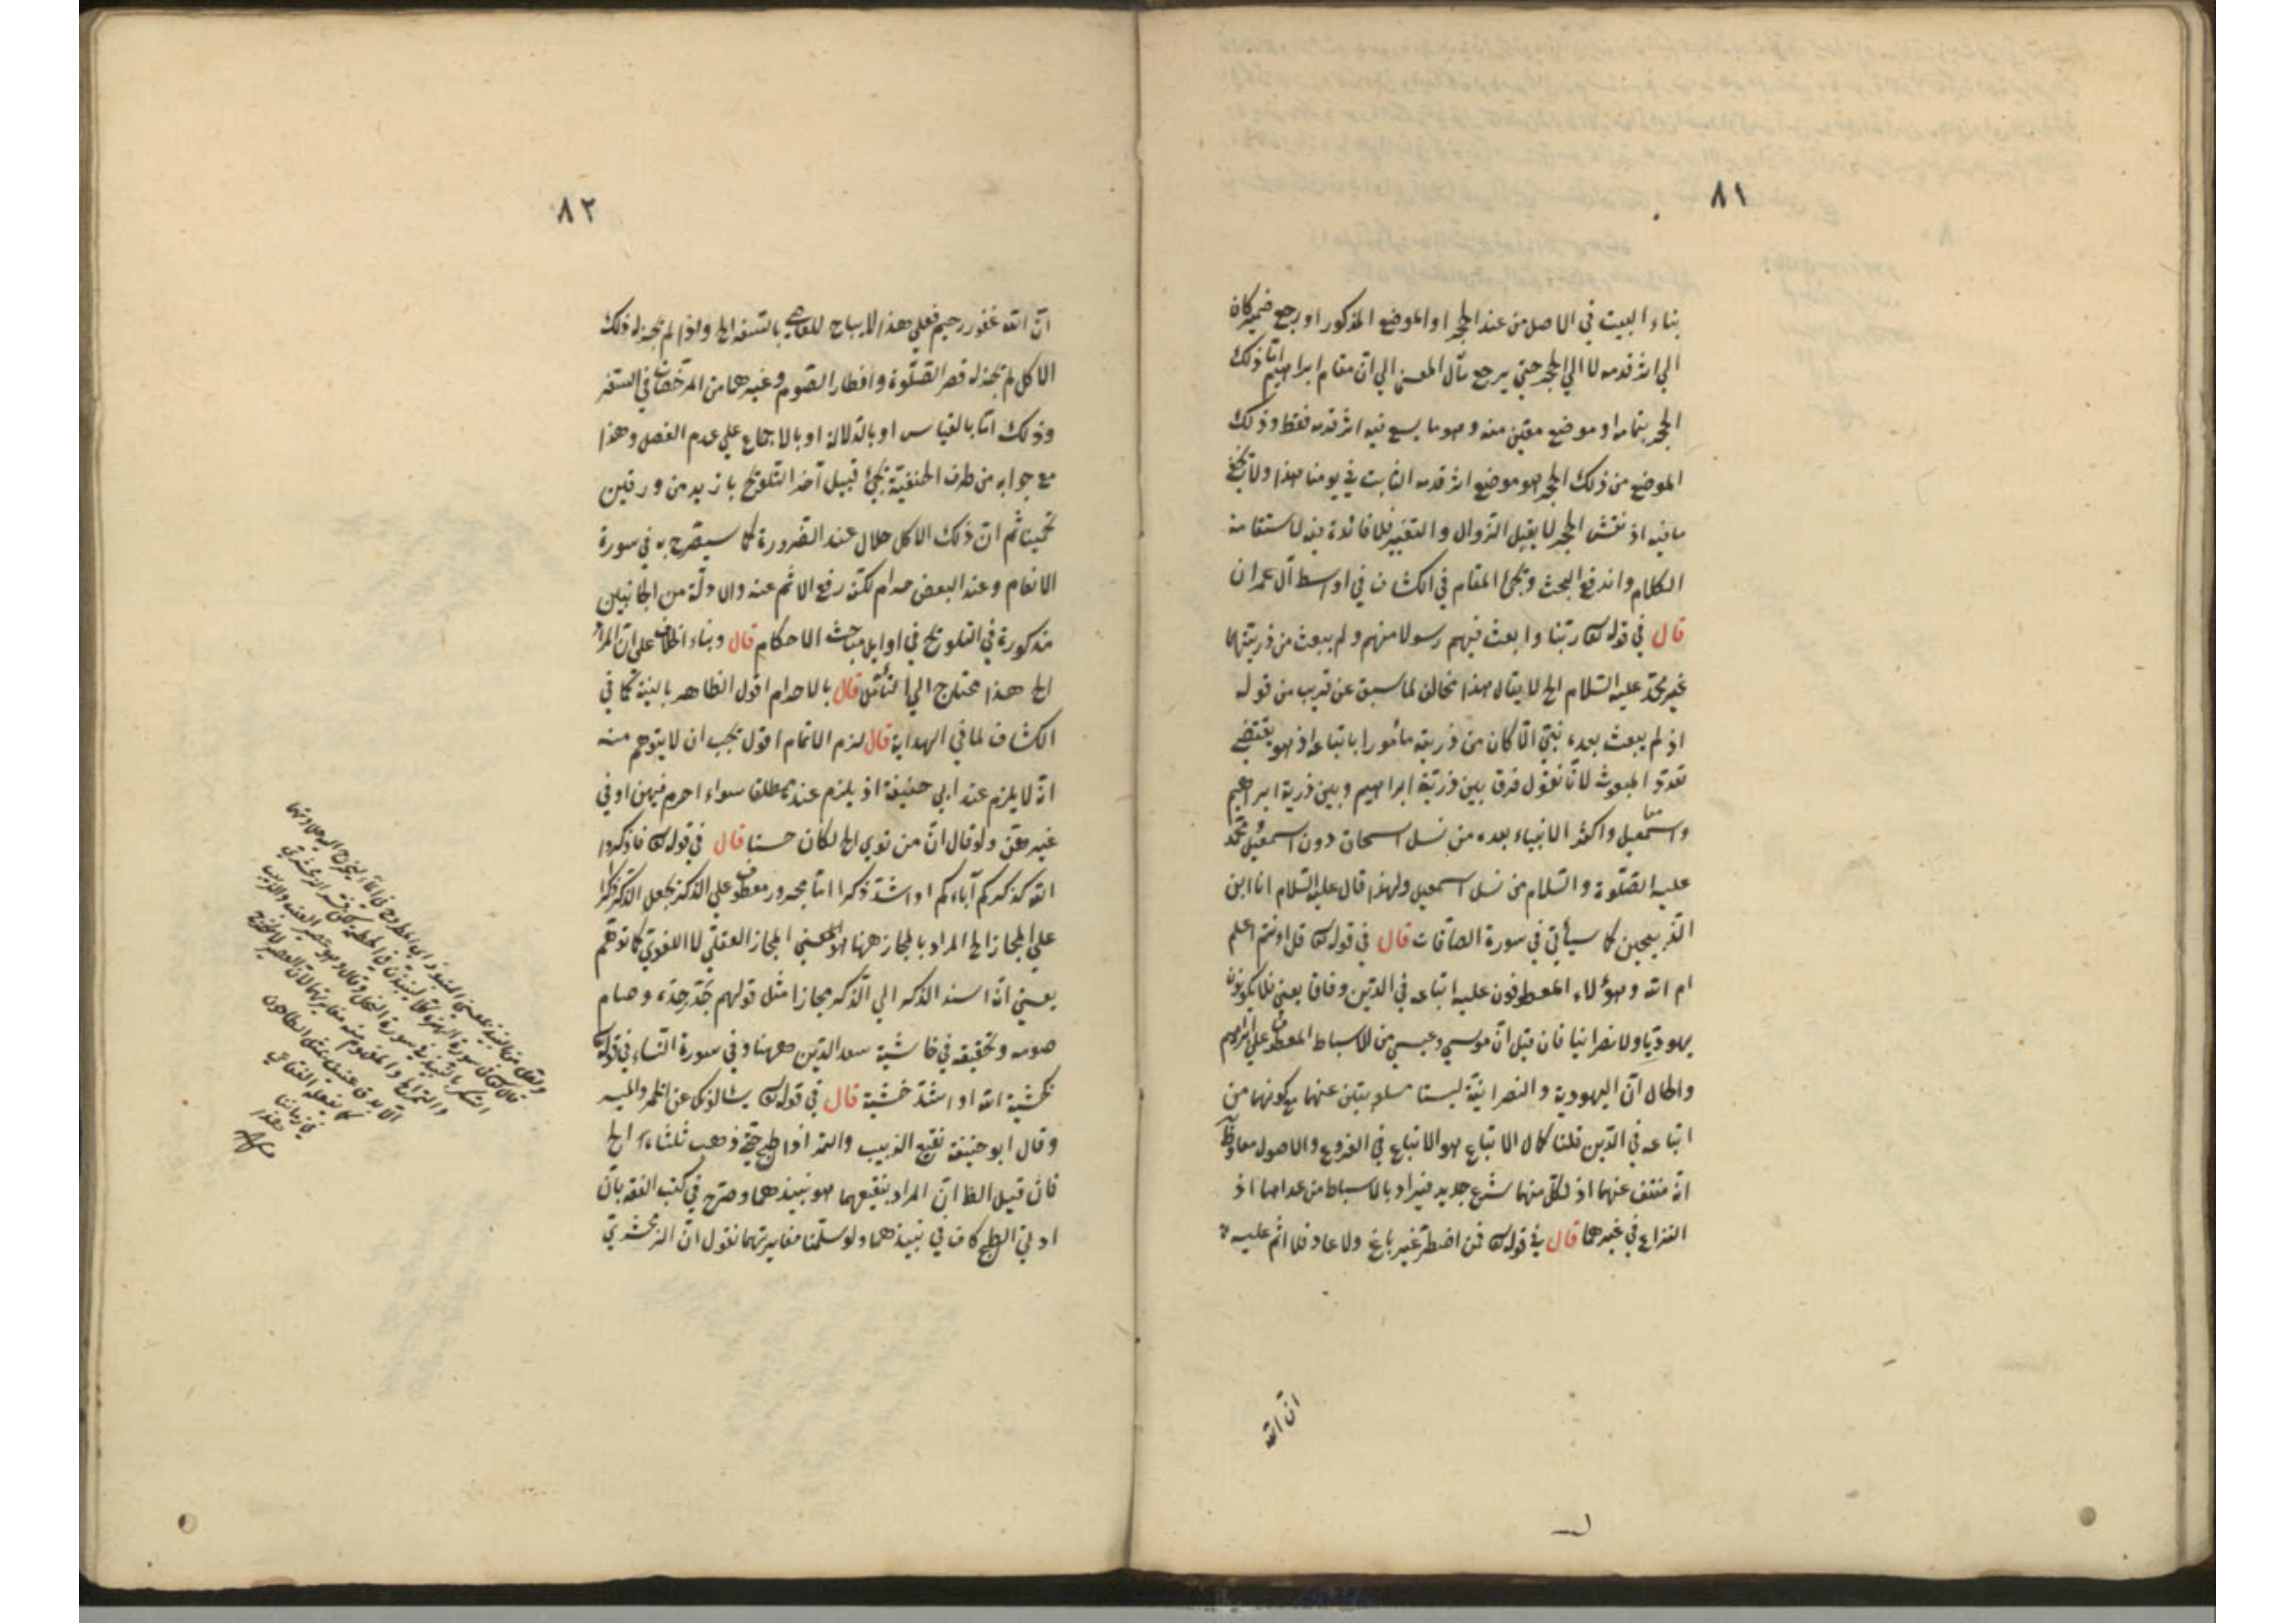 ٨١
بناء البيت في الاصل من عند الحجر او الموضع المذكور او رجع ضمير كان
الي اثر قدمه لا الي الحجر حتي يرجع مآل المعني الي ان مقام ابراهيم اما ذلك
الحجر بتمامه او موضع معين منه وهو ما يسع فيه اثر قدمه فقط وذلك
الموضع من ذلك الحجر هو موضع اثر قدمه الثابت في يومنا هذا ولا يخفي
ما فيه اذ نقش الحجر لا يقبل الزوال والتغيير فلا فائدة فيه لاستقامة
الكلام واندفع البحث ويجئ المقام في الكشاف في اوسط آل عمران
قال في قوله تع ربنا وابعث فيهم رسولا منهم ولم يبعث من ذريتهما
غير محمد عليه السلام الخ لا يقال هذا مخالف لما سبق عن قريب من قوله
اذ لم يبعث بعده نبي الا كان من ذريته مأمورا باتباعه اذ هو يقتضي
تعدد المبعوث لانا نقول فرق بين ذرية ابراهيم وبين ذرية ابراهيم
واسمعيل معا واكثر الانبياء بعده من نسل اسحاق دون اسمعيل ومحمد
عليه الصلوة والسلام من نسل اسمعيل ولهذا قال عليه السلام انا ابن
الذبيحين كما سيأتي في سورة الصافات قال في قوله تع قل اونتم اعلم
ام الله وهؤلاء المعطوفون عليه اتباعه في الدين وفاقا يعني فلا يكونون
يهوديا ولا نصرانيا فان قيل ان موسي وعيسي من الاسباط المعطوف علي ابراهيم
والحال ان اليهودية والنصرانية ليستا مسلوبتين عنهما مع كونهما من
اتباعه في الدين قلنا كمال الاتباع هو الاتباع في الفروع والاصول معا وظ
انه منتف عنهما اذ لكل منهما شرع جديد فيراد بالاسباط من عداهما اذ
النزاع في غيرهما قال في قوله تع فمن اضطر غير باغ ولا عاد فلا اثم عليه
ان الله
٨٢
ان الله غفور رحيم فعلي هذا لا يباح للعاصي بالسفر الخ واذا لم يجز له ذلك
الاكل لم يجز له قصر الصلوة وافطار الصوم وغيرهما من المرخصات في السفر
وذلك اما بالقياس او بالدلالة او بالاجماع علي عدم الفصل وهذا
مع جوابه من طرف الحنفية يجئ قبيل آخر التلويح بازيد من ورقين
تخمينا ثم ان ذلك الاكل حلال عند الضرورة كما سيصرح به في سورة
الانعام وعند البعض حرام لكنه رفع الاثم عنه والادلة من الجانبين
مذكورة في التلويح في اوايل مباحث الاحكام قال وبناء الخلاف علي ان المراد
الخ هذا محتاج الي التأمل قال بالاحرام اقول الظاهر بالنية كما في
الكشاف لما في الهداية قال لزم الاتمام اقول يجب ان لا يتوهم منه
انه لا يلزم عند ابي حنيفة اذ يلزم عنده مطلقا سواء احرم فيهن او في
غيرهن ولو قال ان من نوي الخ لكان حسنا قال في قوله تع فاذكروا
الله كذكركم آباءكم او اشد ذكرا اما مجرور معطوف علي الذكر بجعل الذكر ذاكرا
علي المجاز الخ المراد بالمجاز ههنا هو المعني المجاز العقلي لا اللغوي كما توهم
يعني انه اسند الذكر الي الذكر مجازا مثل قولهم جد جده وصام
صومه وتحقيقه في حاشية سعد الدين ههنا وفي سورة النساء في قوله تع
كخشية الله او اشد خشية قال في قوله تع يسألونك عن الخمر والميسر
وقال ابو حنيفة نقيع الزبيب والتمر اذا طبخ حتي ذهب ثلثاه الخ
فان قيل الظ ان المراد بنقيعهما هو نبيذهما وصرح في كتب الفقه بان
ادني الطبخ كاف في نبيذهما ولو سلمنا مغايرتهما نقول ان الزمخشري